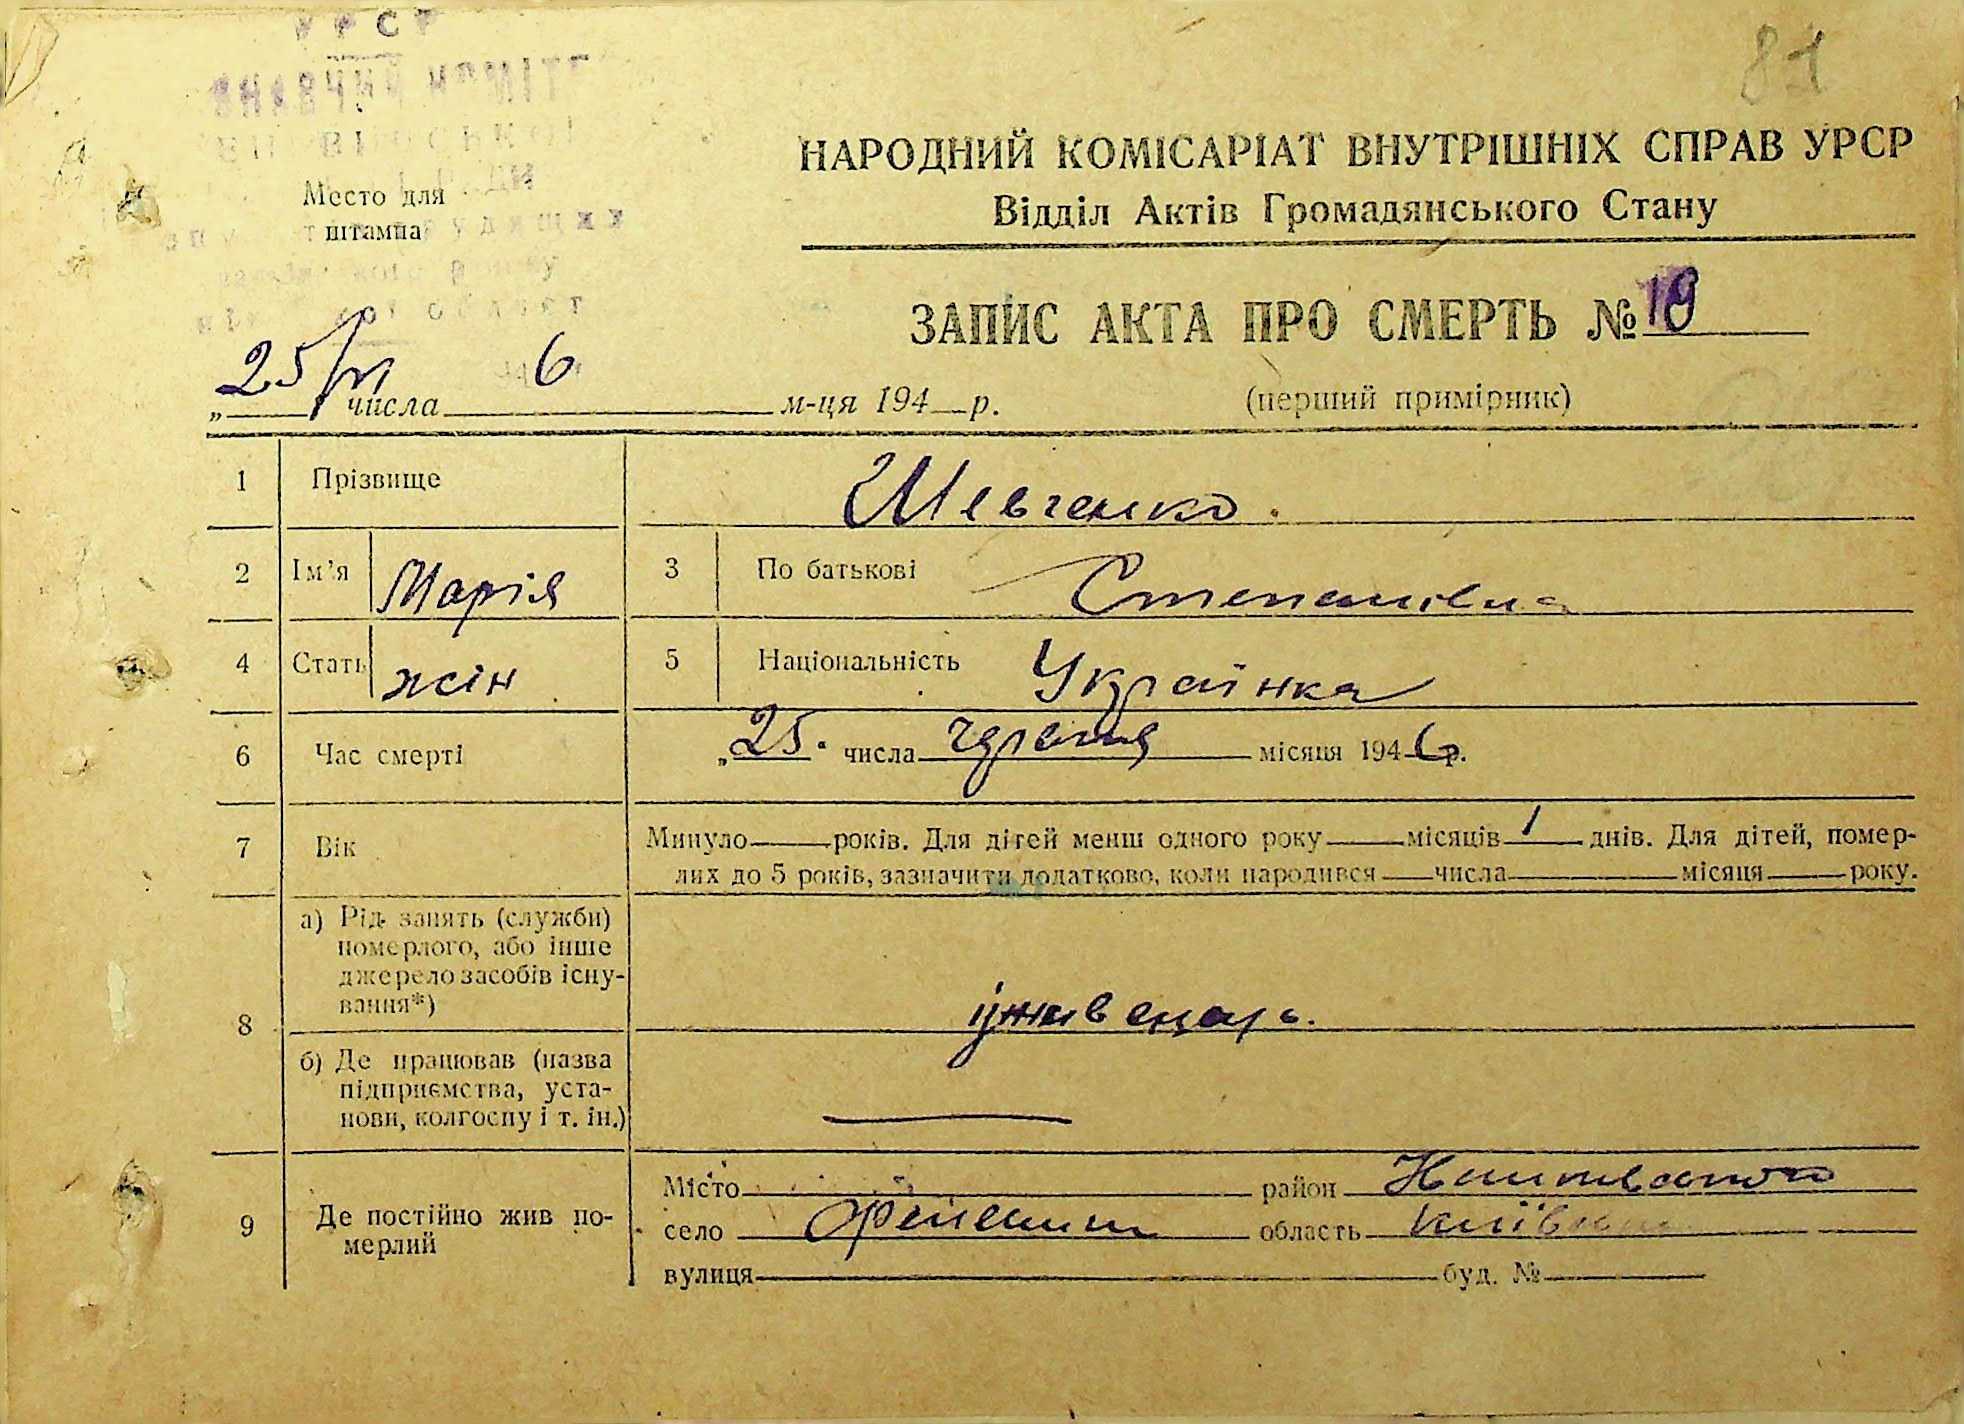 УРСР
81
НАРОДНИЙ КОМІСАРІАТ ВНУТРІШНІХ СПРАВ УРСР
Відділ Актів Громадянського Стану
Место для
штампа
ЗАПИС АКТА ПРО СМЕРТЬ № 19
„25/VI числа 6 м-ця 194 р.
(перший примірник)
1 Прізвище Шевченко.
2 Ім'я Марія 3 По батькові Степанівна
4 Стать жін 5 Національність Українка
6 Час смерті „25. числа червня місяця 1946 р.
7 Вік Минуло років. Для дітей менш одного року місяців 1 днів. Для дітей, помер-
лих до 5 років, зазначити додатково, коли народився числа місяця року.
8 а) Рід занять (служби)
померлого, або інше
джерело засобів існу-
вання*)
іждивенець.
б) Де працював (назва
підприємства, уста-
нови, колгоспу і т. ін.)
9 Де постійно жив по-
мерлий
Місто район
село область Київськ
вулиця буд. №